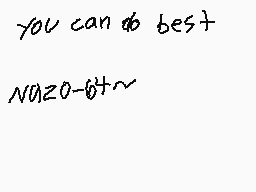 you can do best
Nazo-64~